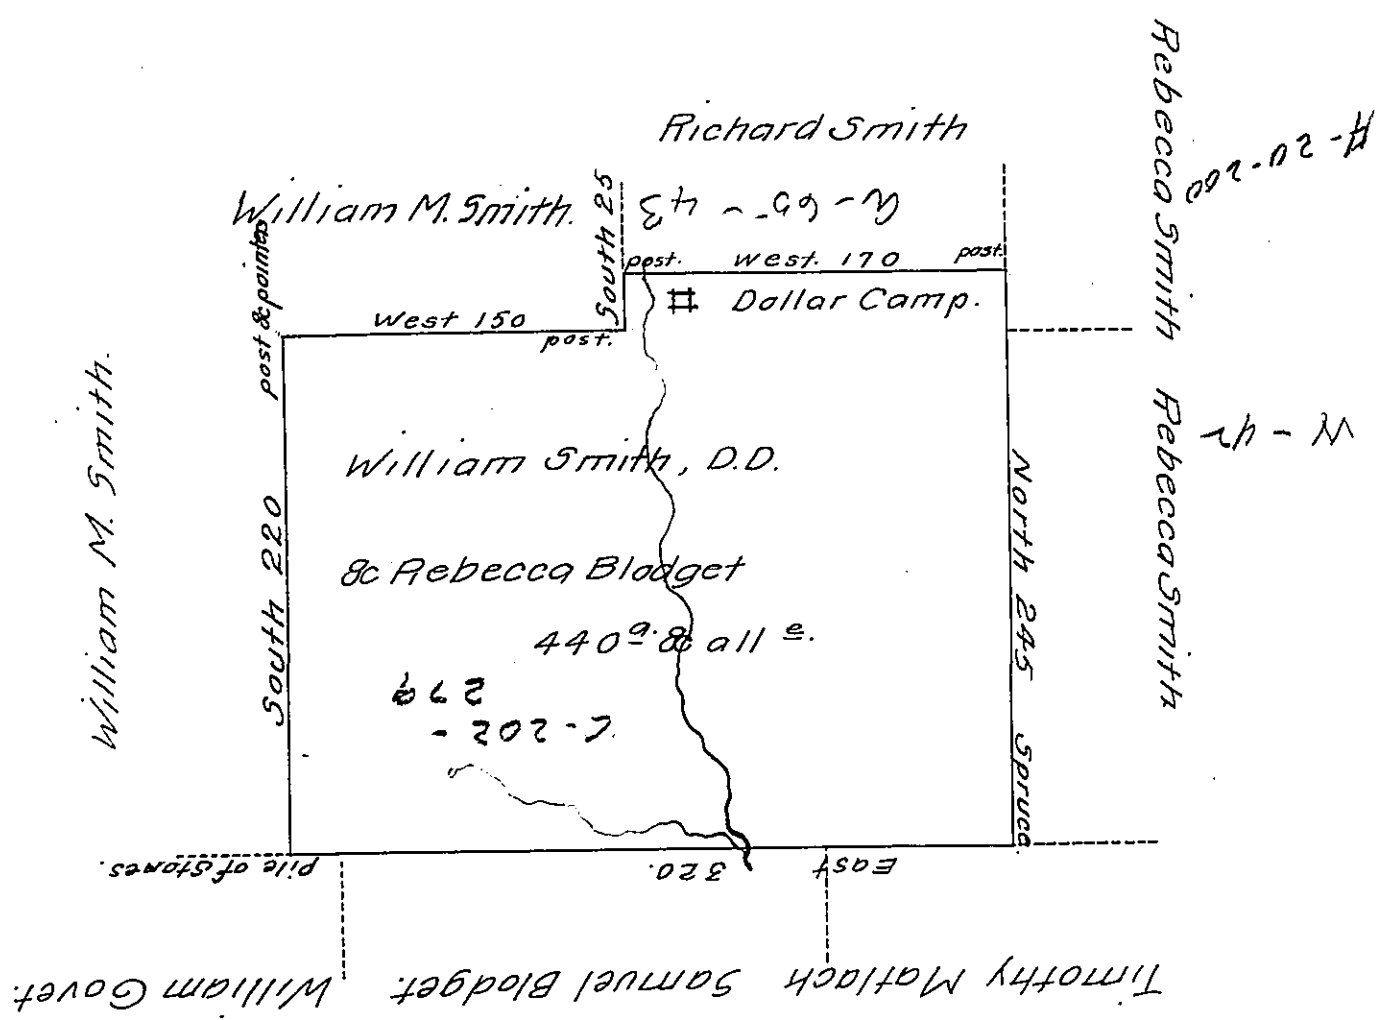 Richard Smith
William M. Smith.
South 25
post.
West. 170
post.
# Dollar Camp.
post & pointers
West 150
post.
William M. Smith.
South 220
William Smith, D.D.
&c Rebecca Blodget
440 a. &c all e.
C-202-
279
North 245 Spruce
Rebecca Smith
A-20-200
Rebecca Smith
Pile of Stones.
320.
East
William Govet.
Samuel Blodget.
Timothy Matlach